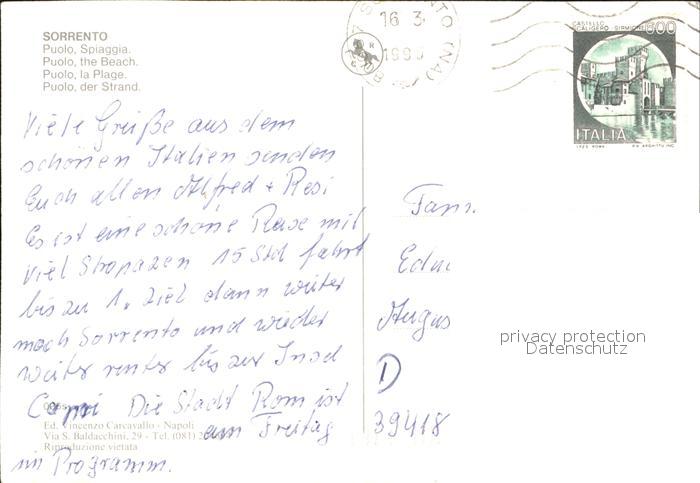 SORRENTO
Puolo, Spiaggia.
Puolo, the Beach.
Puolo, la Plage.
Puolo, der Strand.
SORRENTO (NA)
16 3
CASTELLO
SCALIGERO - SIRMIONE 600
ITALIA
Viele Grüße aus dem
schönen Italien senden
Euch allen Alfred + Resi
Es ist eine schöne Reise mit
viel Strapazen 15 Std fahrt
bis zu 1. Ziel dann weiter
nach Sorrento und wieder
weiter runter bis zur Insel
Capri Die Stadt Rom ist
am Freitag
im Programm.
Fam.
Angus
D
39418
Ed. Vincenzo Carcavallo - Napoli
Via S. Baldacchini, 29 - Tel. (081) 2
Riproduzione vietata
privacy protection
Datenschutz